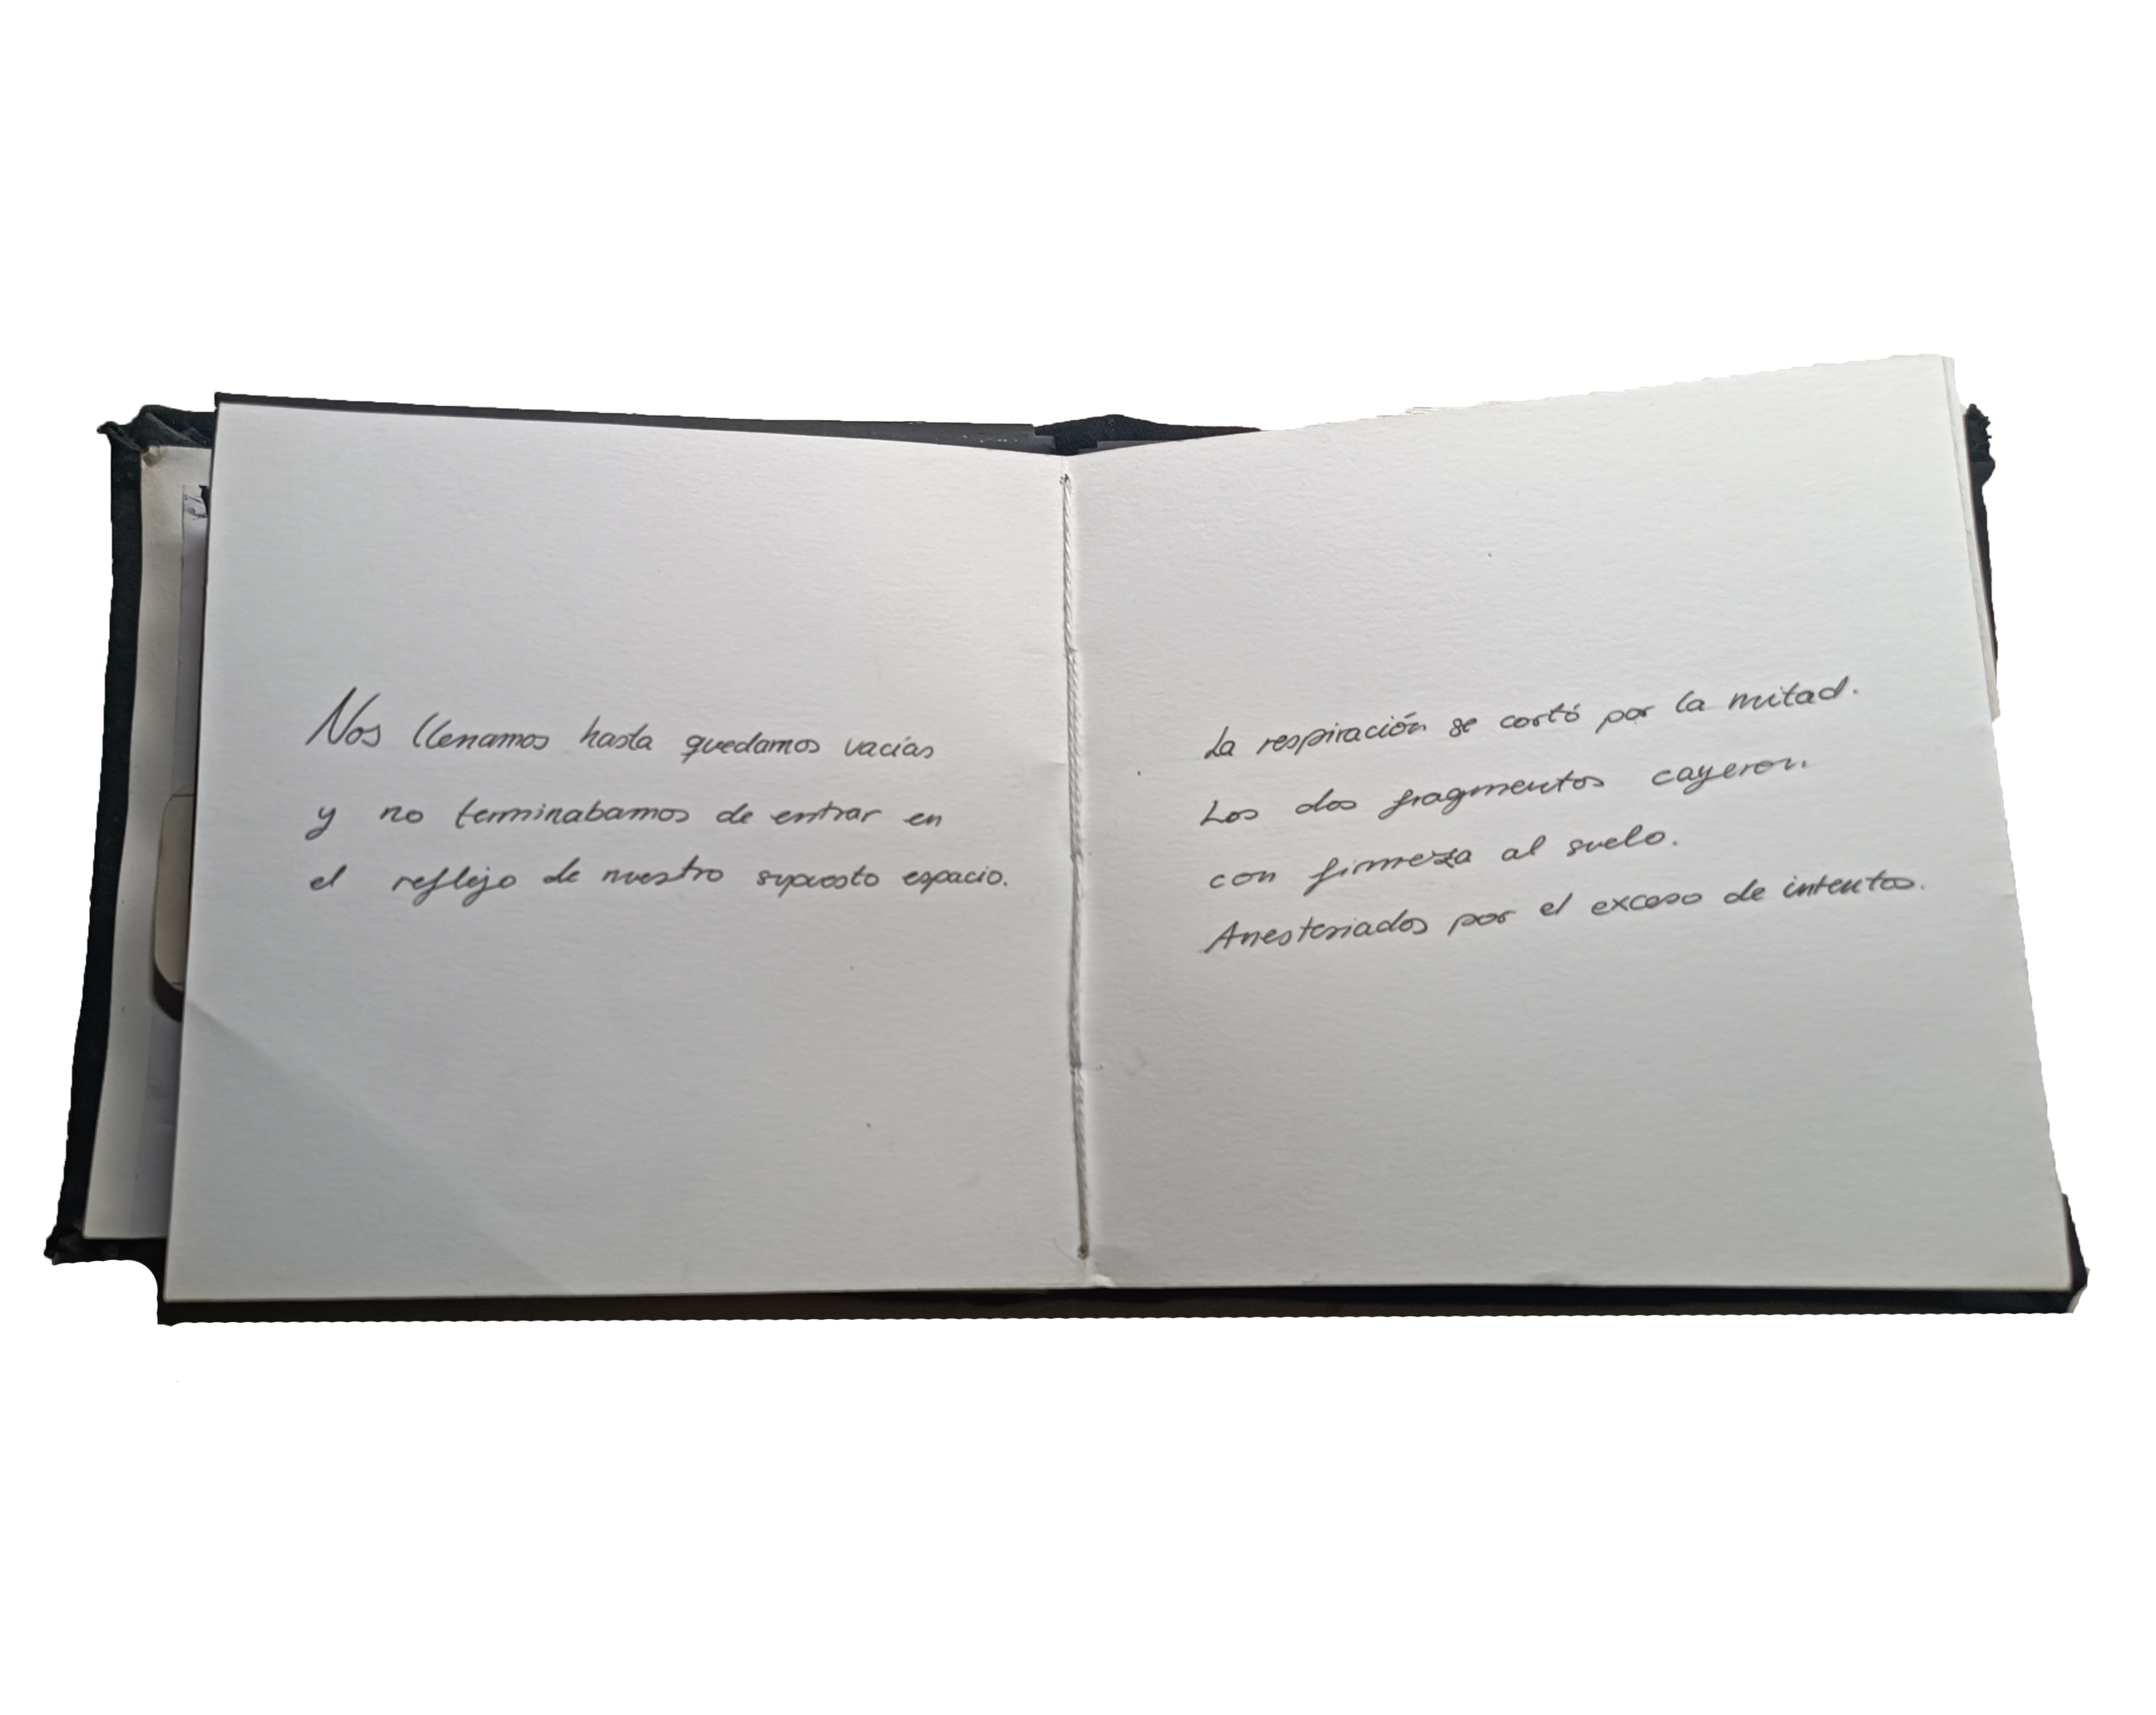 Nos llenamos hasta quedarnos vacías
y no terminabamos de entrar en
el reflejo de nuestro supuesto espacio.
La respiración se cortó por la mitad.
Los dos fragmentos cayeron.
con firmeza al suelo.
Anestesiados por el exceso de intentos.